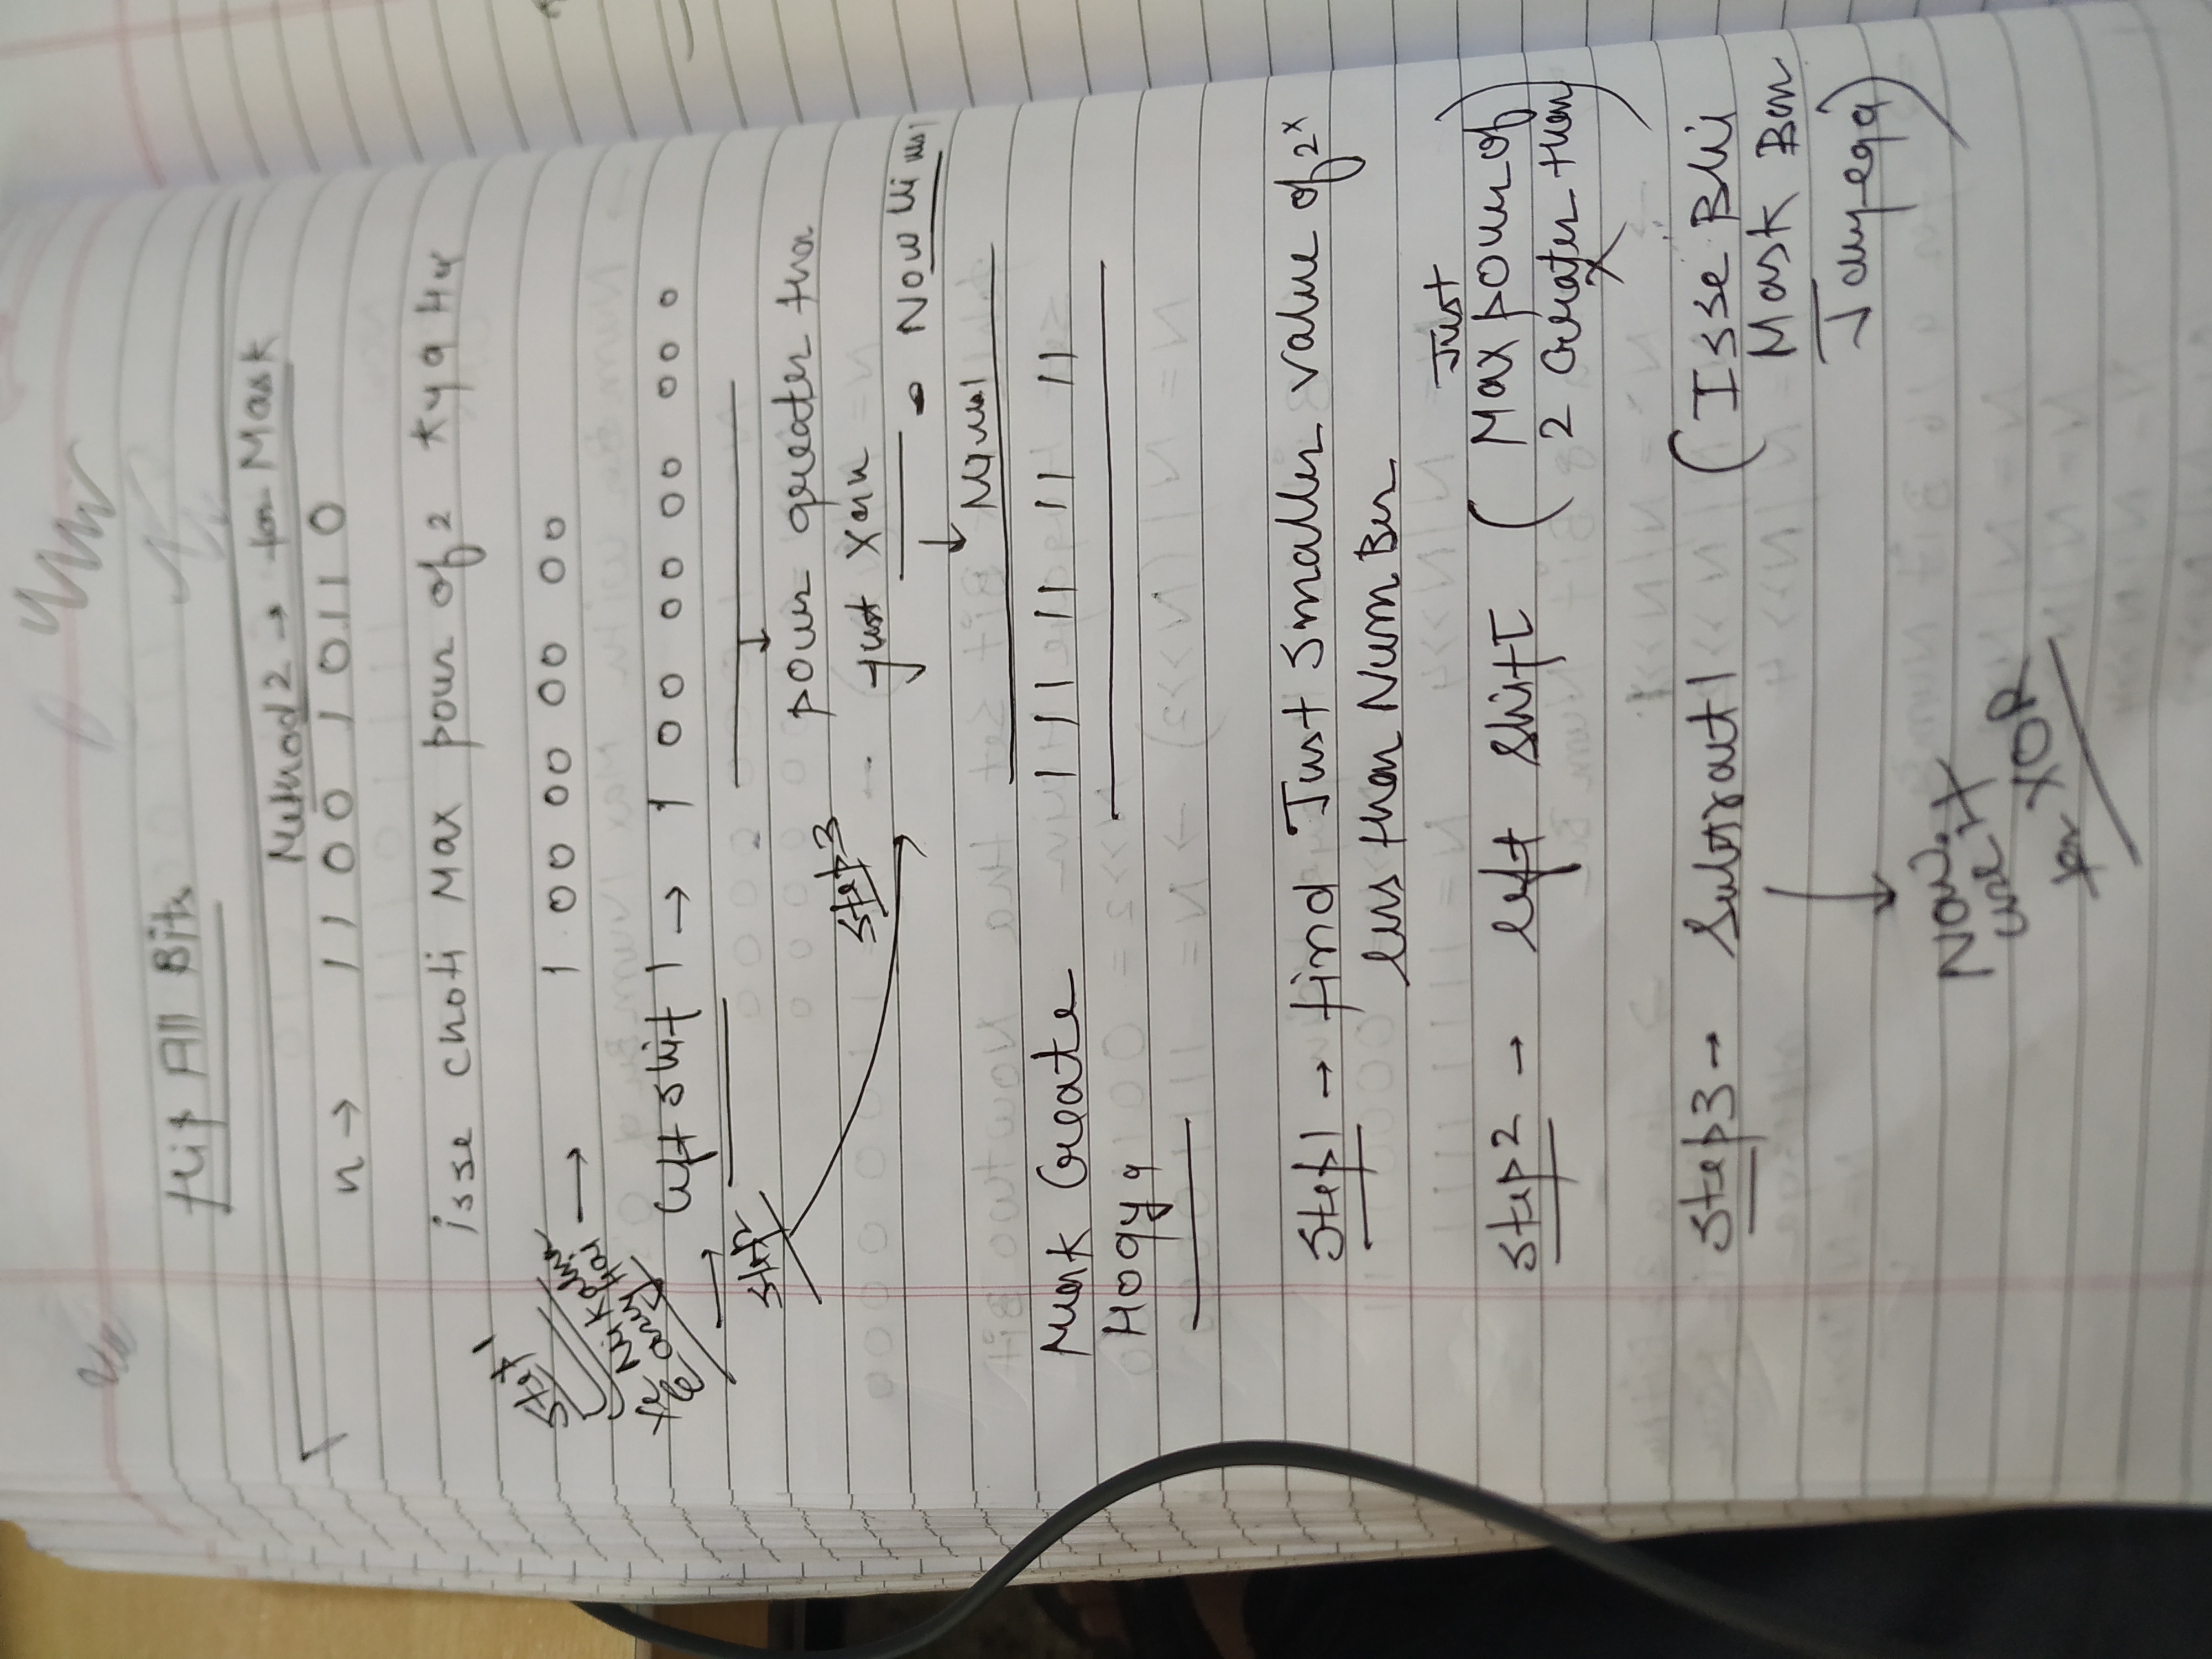 flip All Bits
Method 2 → for Mask
n → 1 1 0 0 1 0 1 1 0
isse choti Max power of 2 kya Hai
Step 1
Ye Nikalna
Easy Hai
→ 1 00 00 00 00
→ left shift 1 → 1 00 00 00 000
Step2
power greater tha
Step3
just
Now Minus 1
Minus 1
Mask Create 1 1 1 1 1 1 1 1 1
Hogya
Step1 → find Just Smaller value of 2ˣ
less than Number
Step2 → left Shift 1 ( Just
Max power of
2 Greater than
X )
Step3 → Subtract 1 ( Isse Bhi
Mask Ban
Jayega )
Now
use it
for XOR